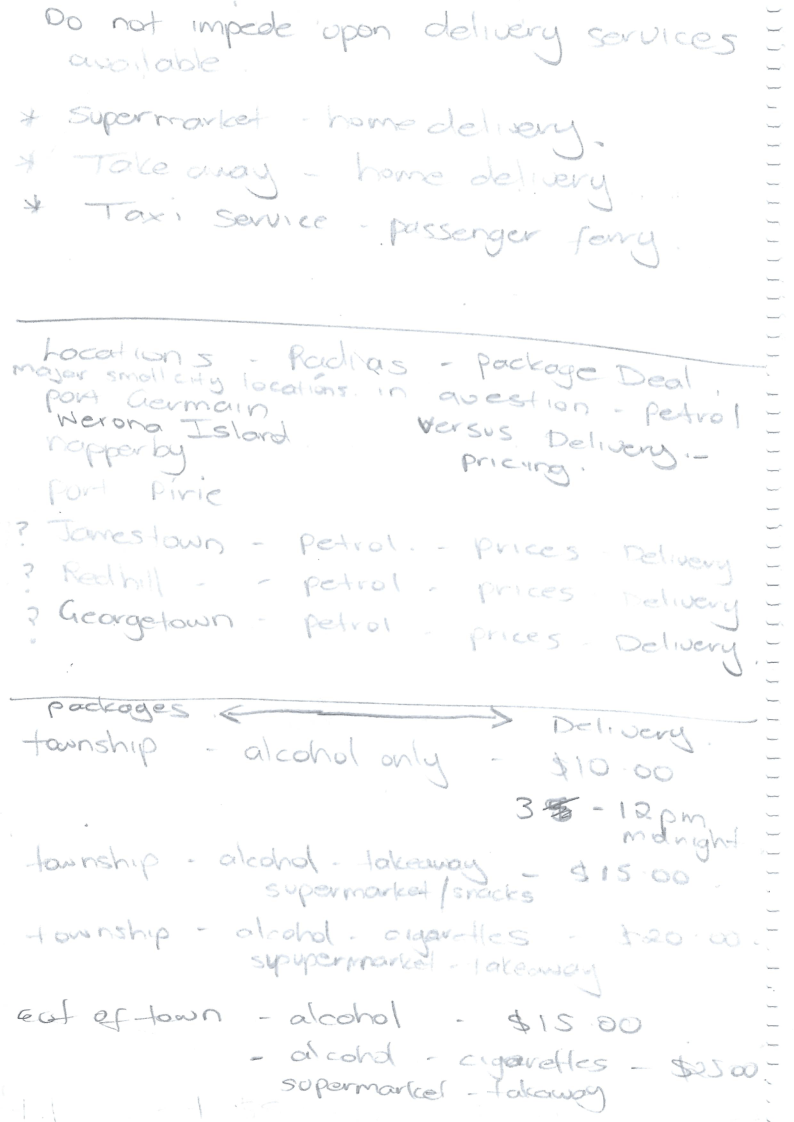 Do not impede upon delivery services
available
* Supermarket - home delivery.
* Take away - home delivery
* Taxi service - passenger ferry.
Locations - Radias - package Deal.
major small city locations in question - petrol
port Germain
Werona Island versus Delivery -
napperby pricing.
port pirie
? Jamestown - petrol - prices Delivery
? Redhill - - petrol - prices Delivery
? Georgetown - petrol - prices - Delivery.
packages ⟷ Delivery.
township - alcohol only - $10.00
3 - 12pm
midnight
township - alcohol - takeaway - $15.00
supermarket/snacks
township - alcohol - cigarettes - $20.00.
supupermarket - takeaway
out of town - alcohol - $15.00
- alcohol - cigarettes - $25.00
supermarket - takaway